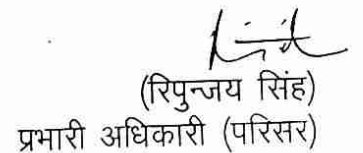 (रिपुन्जय सिंह)
प्रभारी अधिकारी (परिसर)